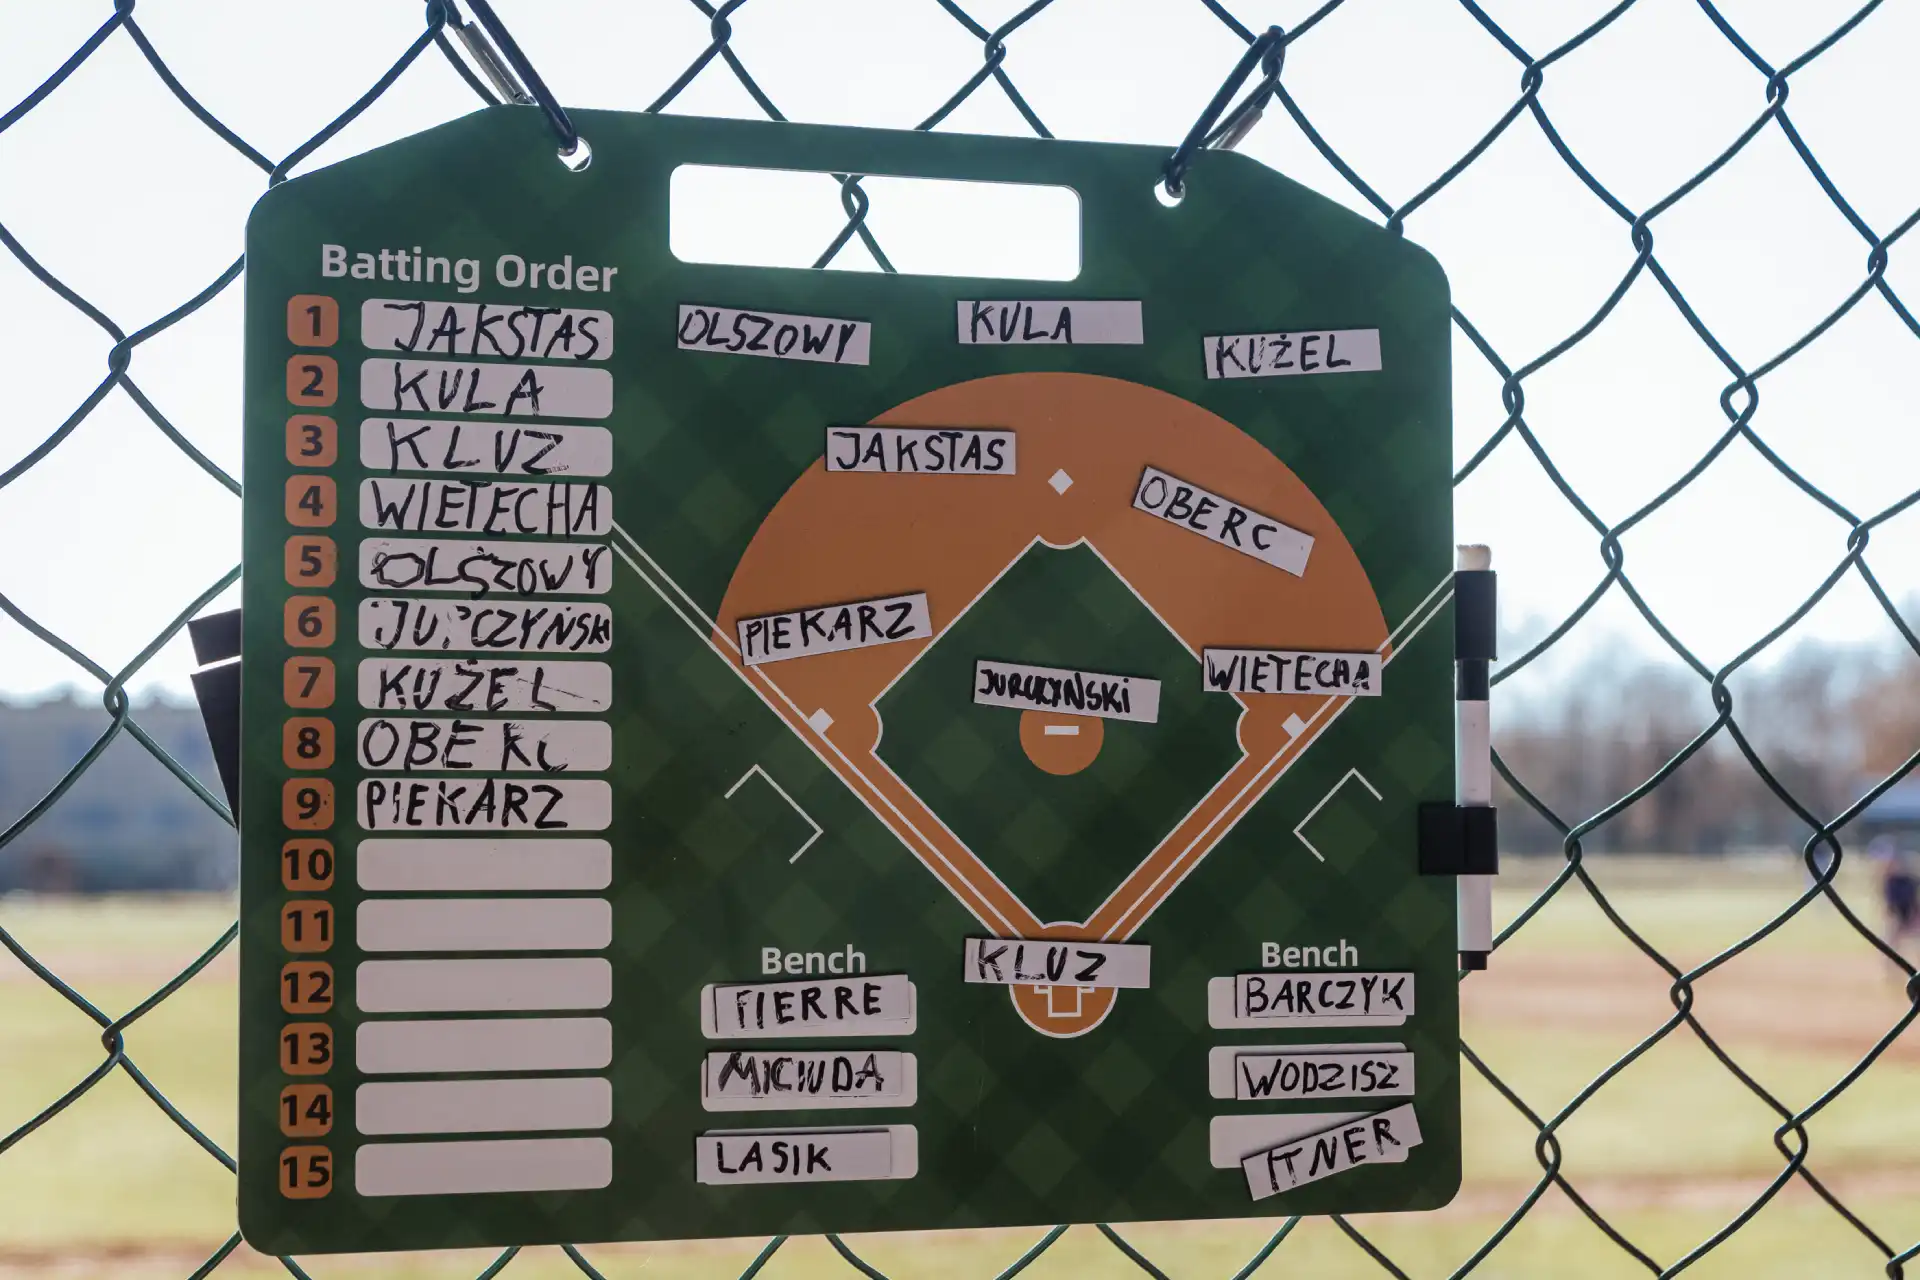 Batting Order
1 JAKSTAS
2 KULA
3 KLUZ
4 WIETECHA
5 OLSZOWY
6 JURCZYŃSKI
7 KUŻEL
8 OBERC
9 PIEKARZ
10
11
12
13
14
15
OLSZOWY
KULA
KUŻEL
JAKSTAS
OBERC
PIEKARZ
JURCZYŃSKI
WIETECHA
KLUZ
Bench
FIERRE
MICIUDA
LASIK
Bench
BARCZYK
WODZISZ
ITNER